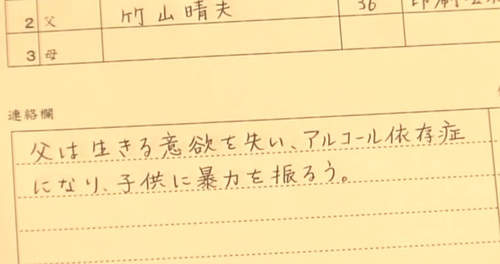 2 父 竹山晴夫 36
3 母
連絡欄
父は生きる意欲を失い、アルコール依存症
になり、子供に暴力を振るう。